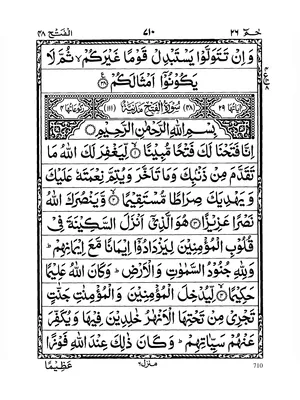 حٰمٓ ٢٦ ٧١٠ الفتح ٤٨
وَاِنْ تَتَوَلَّوْا يَسْتَبْدِلْ قَوْمًا غَيْرَكُمْ ۙ ثُمَّ لَا
يَكُوْنُوْۤا اَمْثَالَكُمْ
اٰيَاتُهَا ٢٩ (٤٨) سُوْرَةُ الْفَتْحِ مَدَنِيَّةٌ (١١١) رُكُوْعَاتُهَا ٤
بِسْمِ اللّٰهِ الرَّحْمٰنِ الرَّحِيْمِ
اِنَّا فَتَحْنَا لَكَ فَتْحًا مُّبِيْنًا ۙ لِّيَغْفِرَ لَكَ اللّٰهُ مَا
تَقَدَّمَ مِنْ ذَنْۢبِكَ وَمَا تَاَخَّرَ وَيُتِمَّ نِعْمَتَهٗ عَلَيْكَ
وَيَهْدِيَكَ صِرَاطًا مُّسْتَقِيْمًا ۙ وَّيَنْصُرَكَ اللّٰهُ
نَصْرًا عَزِيْزًا هُوَ الَّذِيْۤ اَنْزَلَ السَّكِيْنَةَ فِيْ
قُلُوْبِ الْمُؤْمِنِيْنَ لِيَزْدَادُوْۤا اِيْمَانًا مَّعَ اِيْمَانِهِمْ ؕ
وَلِلّٰهِ جُنُوْدُ السَّمٰوٰتِ وَالْاَرْضِ ؕ وَكَانَ اللّٰهُ عَلِيْمًا
حَكِيْمًا ۙ لِّيُدْخِلَ الْمُؤْمِنِيْنَ وَالْمُؤْمِنٰتِ جَنّٰتٍ
تَجْرِيْ مِنْ تَحْتِهَا الْاَنْهٰرُ خٰلِدِيْنَ فِيْهَا وَيُكَفِّرَ
عَنْهُمْ سَيِّاٰتِهِمْ ؕ وَكَانَ ذٰلِكَ عِنْدَ اللّٰهِ فَوْزًا
عَظِيْمًا
منزل ٦
710